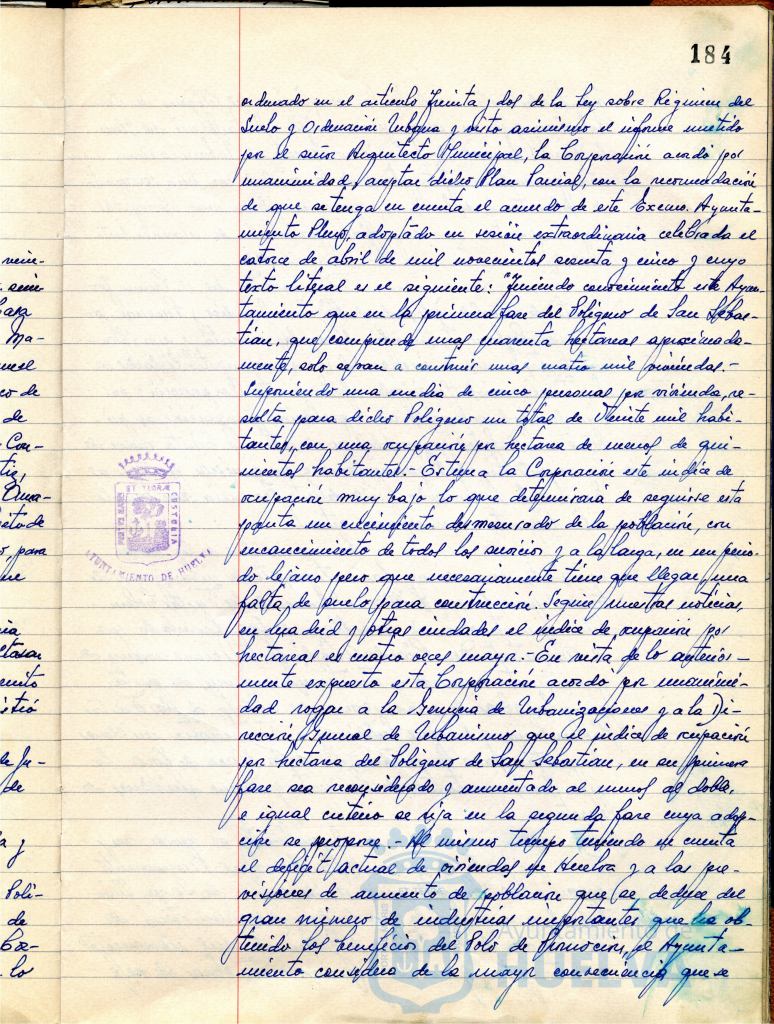 184
ordenado en el artículo treinta y dos de la Ley sobre Régimen del
Suelo y Ordenación Urbana y visto asimismo el informe emitido
por el señor Arquitecto Municipal, la Corporación acordó por
unanimidad, aceptar dicho Plan Parcial, con la recomendación
de que se tenga en cuenta el acuerdo de este Excmo. Ayunta-
miento Pleno, adoptado en sesión extraordinaria celebrada el
catorce de abril de mil novecientos sesenta y cinco y cuyo
texto literal es el siguiente: "Teniendo conocimiento este Ayun-
tamiento que en la primera fase del Polígono de San Sebas-
tián, que comprende unas cuarenta hectáreas aproximada-
mente, solo se van a construir unas cuatro mil viviendas.-
Suponiendo una media de cinco personas por vivienda, re-
sulta para dicho Polígono un total de Veinte mil habi-
tantes, con una ocupación por hectarea de menos de qui-
nientos habitantes.- Estima la Corporación este indice de
ocupación muy bajo lo que determinará de seguirse esta
pauta un crecimiento desmesurado de la población, con
encarecimiento de todos los servicios y a la larga, en un perio-
do lejano pero que necesariamente tiene que llegar, una
falta de suelo para construcción. Según nuestras noticias,
en Madrid y otras ciudades el indice de ocupación por
hectareas es cuatro veces mayor.- En vista de lo anterior-
mente expuesto esta Corporación acordo por unanimi-
dad rogar a la Gerencia de Urbanizaciones y a la Di-
rección General de Urbanismo que el indice de ocupación
por hectarea del Polígono de San Sebastián, en su primera
fase sea reconsiderado y aumentado al menos al doble,
e igual criterio se siga en la segunda fase cuya adop-
ción se propone.- Al mismo tiempo teniendo en cuenta
el deficit actual de viviendas en Huelva y a las pre-
visiones de aumento de población que se deduce del
gran número de industrias importantes que ha ob-
tenido los beneficios del Polo de Promoción, el Ayunta-
miento considera de la mayor consecuencia que se
AYUNTAMIENTO DE HUELVA
PORTUS MARIS ET TERRAE CUSTODIA
Ayuntamiento de
HUELVA